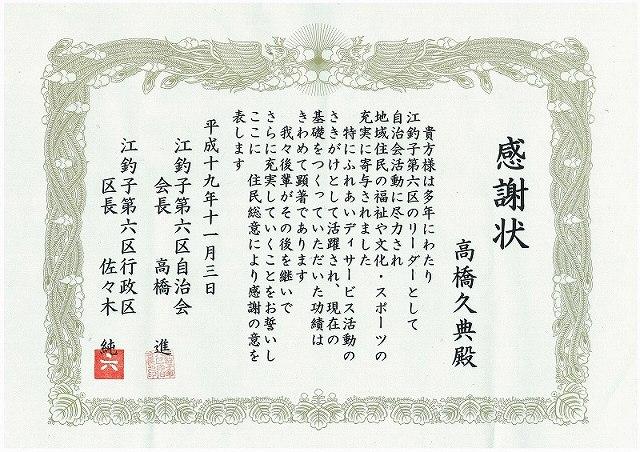 感謝状
高橋久典殿
貴方様は多年にわたり
江釣子第六区のリーダーとして
自治会活動に尽力され
地域住民の福祉や文化・スポーツの
充実に寄与されました
特にふれあいディサービス活動の
さきがけとして活躍され、現在の
基礎をつくっていただいた功績は
きわめて顕著であります
我々後輩がその後を継いで
さらに充実していくことをお誓いし
ここに 住民総意により感謝の意を
表します
平成十九年十一月三日
江釣子第六区自治会
会長 高橋 進
江釣子第六区行政区
区長 佐々木 純
六